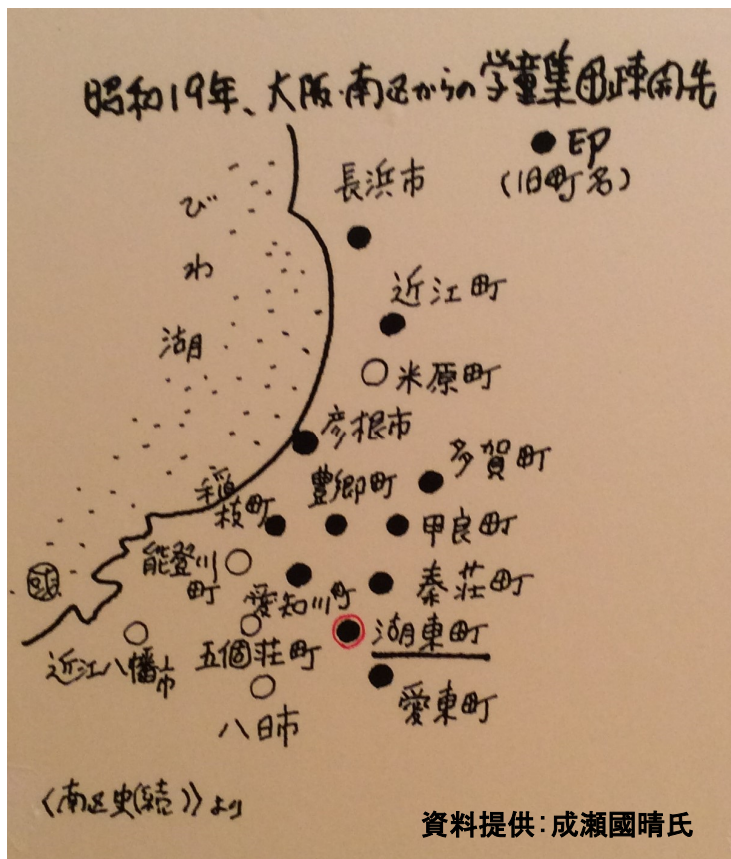 昭和19年、大阪・南区からの学童集団疎開先
●印
(旧町名)
長浜市
びわ湖
近江町
米原町
彦根市
多賀町
豊郷町
稲枝町
甲良町
能登川町
愛知川町
秦荘町
湖東町
五個荘町
近江八幡市
愛東町
八日市
〈南区史(続)〉より
資料提供:成瀬國晴氏